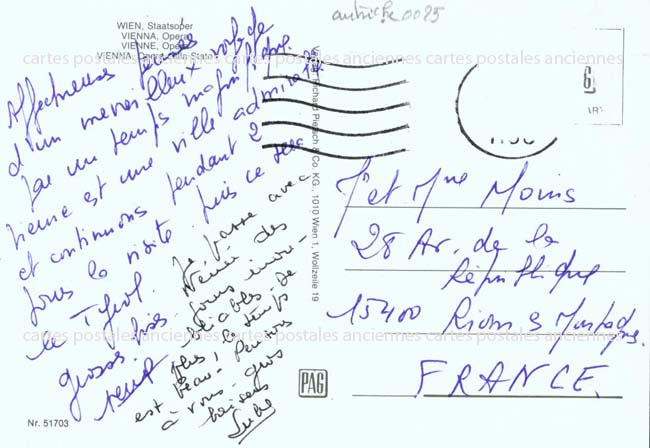 autriche 0025
WIEN, Staatsoper
VIENNA, Opera
VIENNE, Opera
VIENNA, Opera dello Stato
cartes postales anciennes cartes postales anciennes cartes postales anciennes
Affectueuses pensées
d'un merveilleux voyage
par un temps magnifique.
Vienne est une ville admirable
et continuons pendant 2
jours la visite. puis ce sera
le Tyrol.
grosses bises.
Je passe avec
Mémé des
jours inou-
bliables. De
plus, le temps
est beau. Pensons
à vous. gros
baisers
Verlag Richard Pietsch & Co. KG., 1010 Wien 1, Wollzeile 19
6
Mr et Mme Moins
28 Av. de la
République
15400 Riom es Montagnes
FRANCE.
cartes postales anciennes cartes postales anciennes cartes postales anciennes
PAG
Nr. 51703